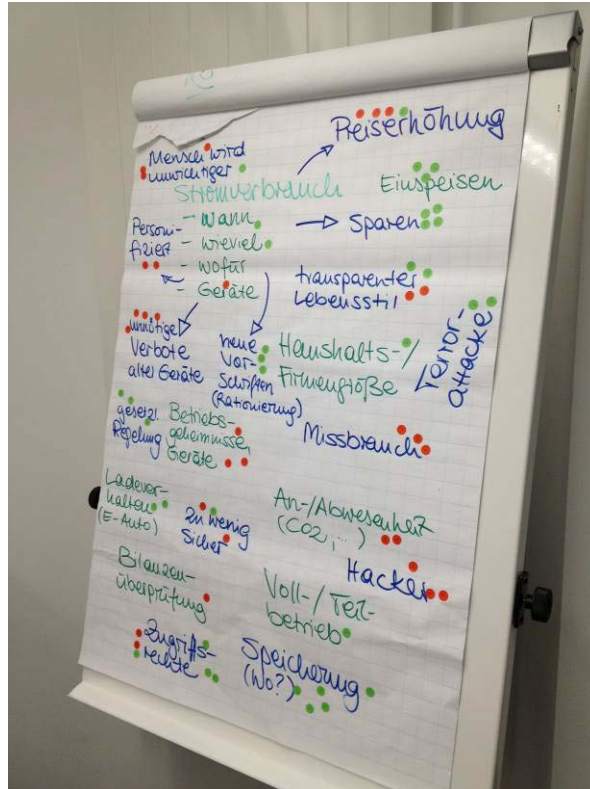 Preiserhöhung
Mensch wird
unwichtiger
Stromverbrauch
Einspeisen
- wann
- wieviel
- wofür
- Geräte
Sparen
Personi-
fiziert
transparenter
Lebensstil
unnötige
Verbote
alter Geräte
neue
Vor-
schriften
(Rationierung)
Haushalts-/
Firmengröße
Terror-
attacke
gesetzl.
Regelung
Betriebs-
geheimnisse,
Geräte
Missbrauch
Ladever-
halten
(E-Auto)
zu wenig
Sicher
An-/Abwesenheit
(CO2, ...)
Hacker
Bilanzen-
überprüfung
Voll-/Teil-
betrieb
Zugriffs-
rechte
Speicherung
(Wo?)